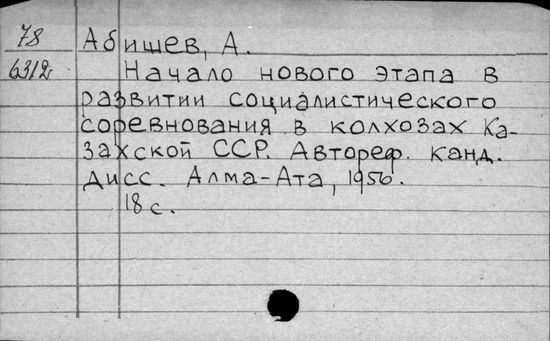 78 Абишев, А.
6312 Начало нового этапа в
развитии социалистического
соревнования в колхозах Ка-
захской ССР. Автореф. канд.
дисс. Алма-Ата, 1956.
18 с.